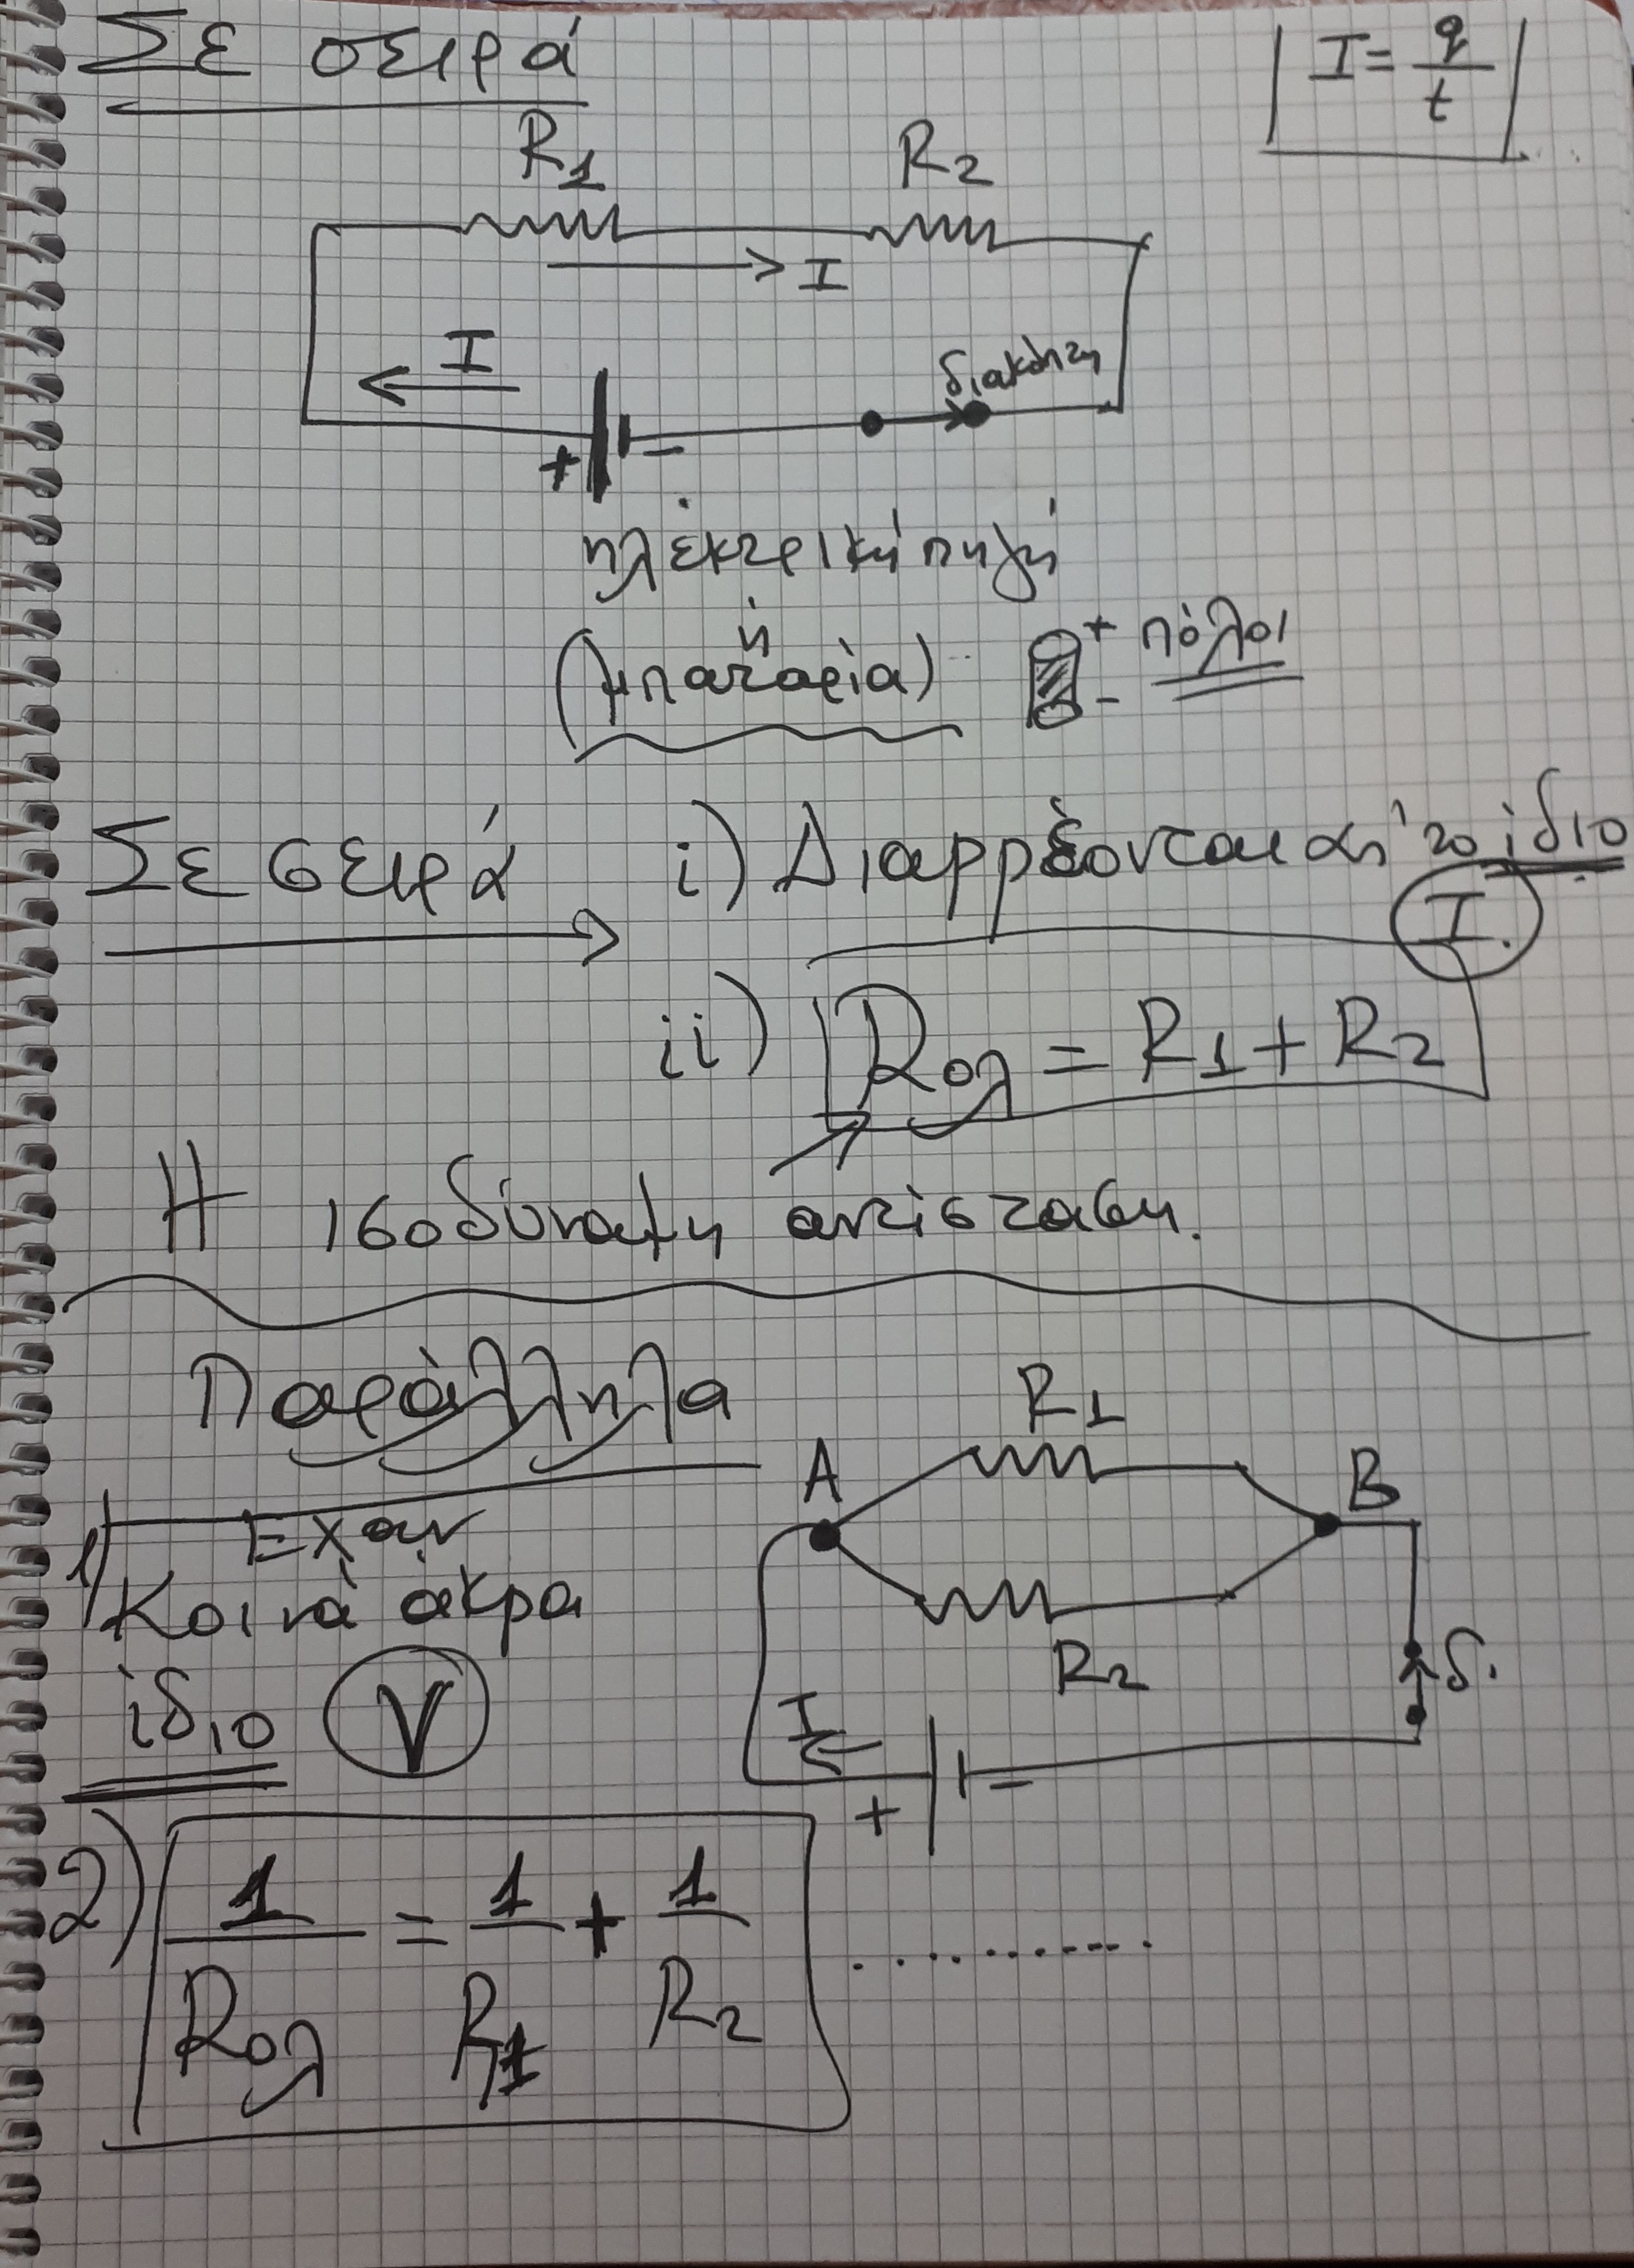 Σε σειρά
I = q/t
R1 R2
I
I
διακόπτη
+ -
ηλεκτρική πηγή
ή
(μπαταρία)
+ πόλοι
-
Σε σειρά i) Διαρρέονται απ' το ίδιο
I.
ii) Rολ = R1 + R2
Η ισοδύναμη αντίσταση.
Παράλληλα
R1
A B
1) Έχουν
Κοινά άκρα
R2
δ.
ίδιο V
I
+ -
2) 1/Rολ = 1/R1 + 1/R2 ..........